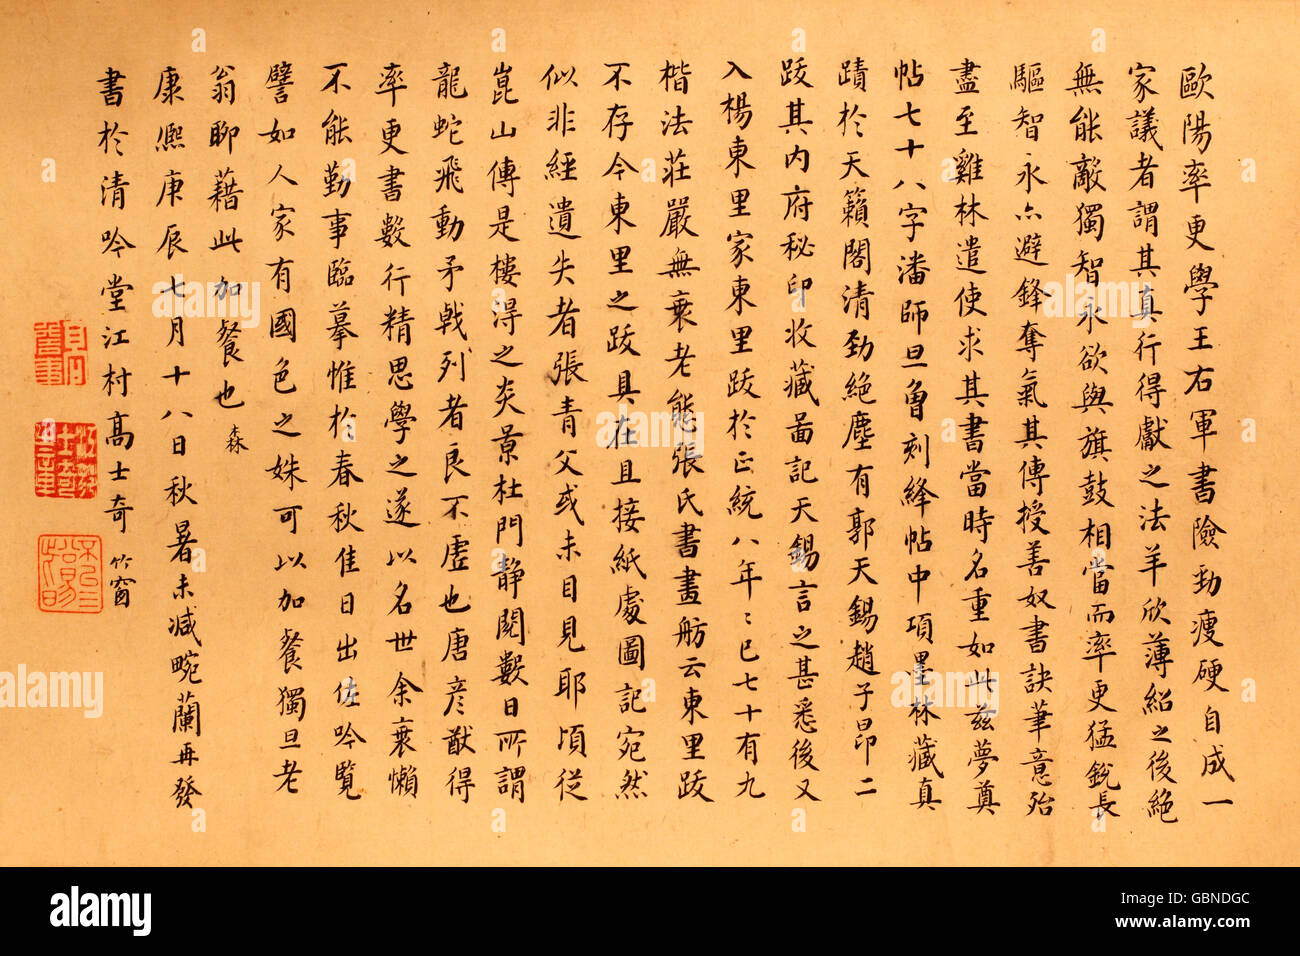 歐陽率更學王右軍書險勁瘦硬自成一
家議者謂其真行得獻之法羊欣薄紹之後絕
無能敵獨智永欲與旗鼓相當而率更猛銳長
驅智永亦避鋒奪氣其傳授善奴書訣筆意殆
盡至雞林遣使求其書當時名重如此茲夢奠
帖七十八字潘師旦曾刻絳帖中項墨林藏真
蹟於天籟閣清勁絕塵有郭天錫趙子昂二
跋其內府秘印收藏圖記天錫言之甚悉後又
入楊東里家東里跋於正統八年二已七十有九
楷法莊嚴無衰老態張氏書畫舫云東里跋
不存今東里之跋具在且接紙處圖記宛然
似非經遺失者張青父或未目見耶頃從
崑山傳是樓得之炎景杜門靜閱數日所謂
龍蛇飛動矛戟列者良不虛也唐彥猷得
率更書數行精思學之遂以名世余衰懶
不能勤事臨摹惟於春秋佳日出佐吟覽
譬如人家有國色之姝可以加餐獨旦老
翁聊藉此加餐也 森
康熙庚辰七月十八日秋暑未減畹蘭再發
書於清吟堂江村高士奇 竹窗
alamy
Image ID: GBNDGC
www.alamy.com